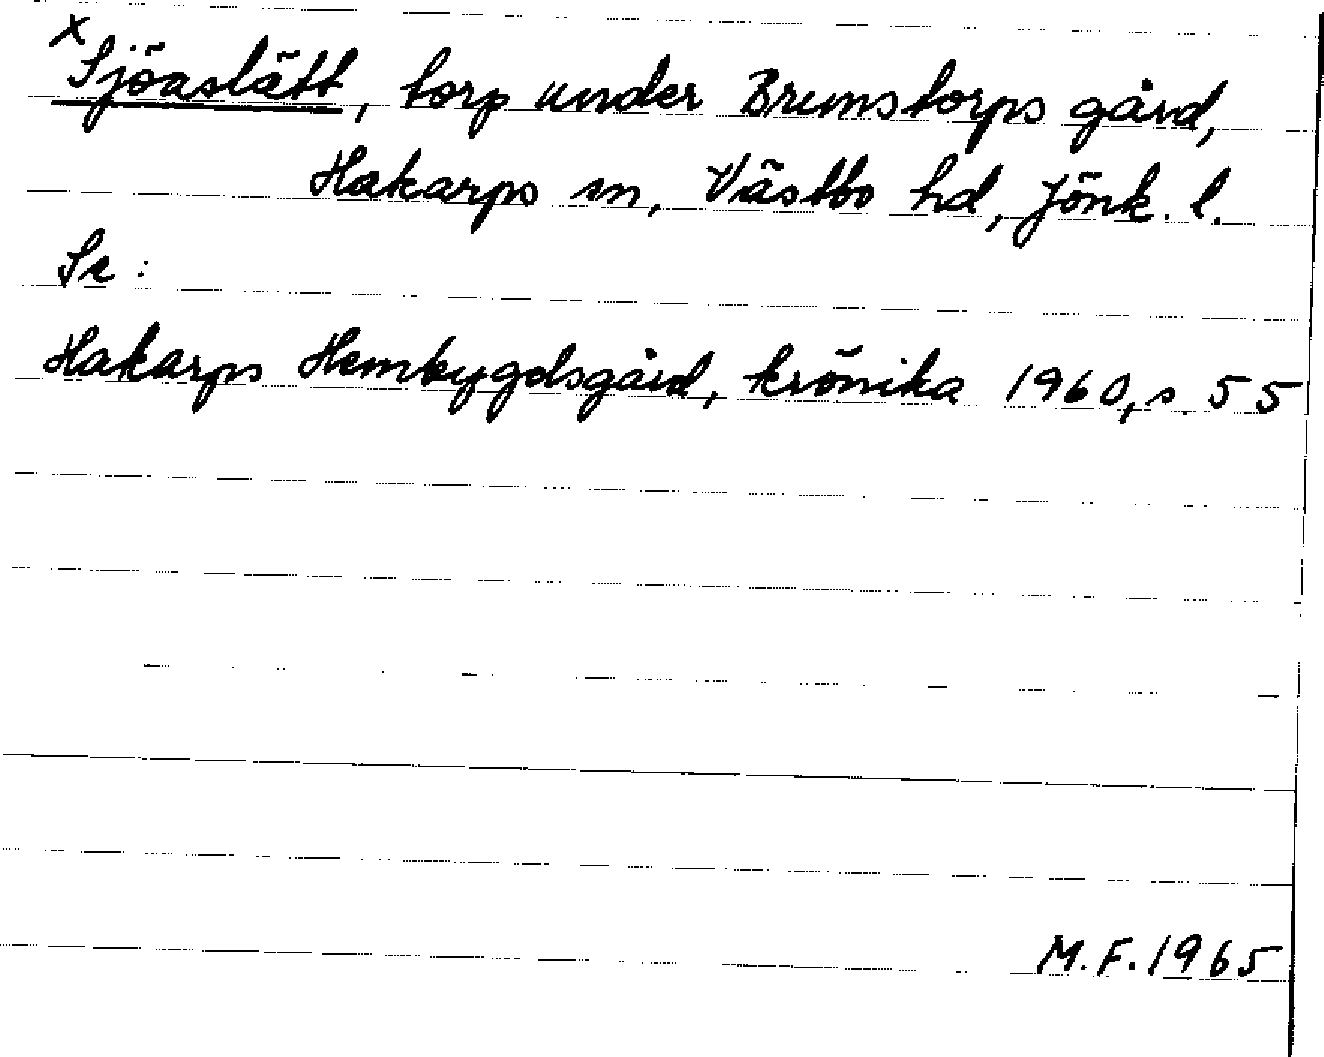 x Sjöaslätt, torp under Brunstorps gård,
Hakarps sn, Västbo hd, Jönk. l.
Se:
Hakarps Hembygdsgård, krönika 1960, s. 55
M.F. 1965